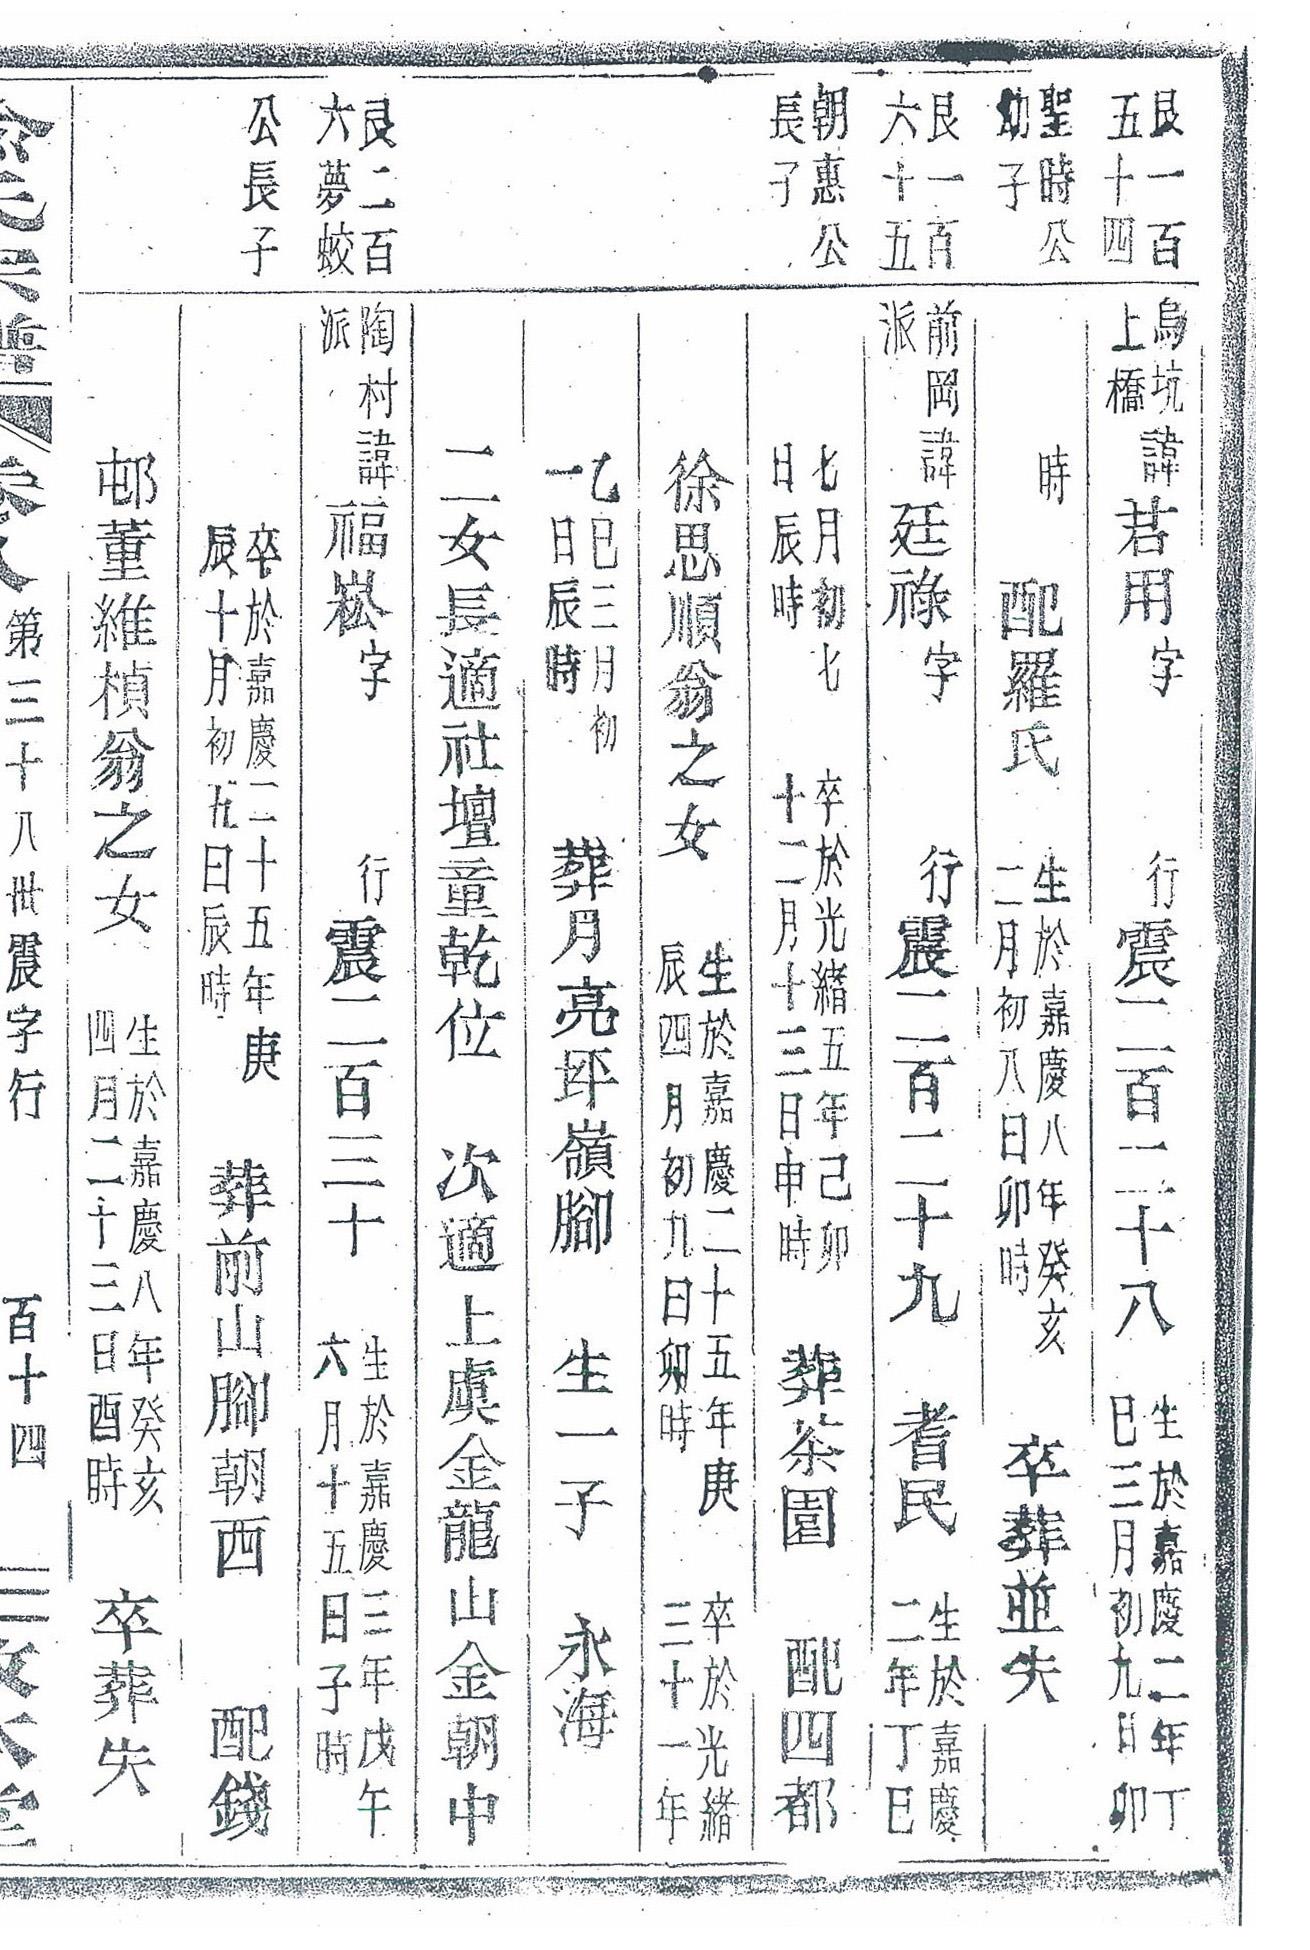 艮一百五十四
聖時公幼子
烏坑上橋 諱君用字 行震二百二十八 生於嘉慶二年丁巳三月初九日卯
時 配羅氏 生於嘉慶八年癸亥二月初八日卯時 卒葬並失
艮一百六十五
朝惠公長子
前岡派 諱廷祿字 行震二百二十九 耆民 生於嘉慶二年丁巳
七月初七日辰時 卒於光緒五年己卯十二月十三日申時 葬茶園 配四都
徐思順翁之女 生於嘉慶二十五年庚辰四月初九日卯時 卒於光緒三十一年
乙巳三月初一日辰時 葬月亮坪嶺腳 生一子 永海
二女長適社壇童乾位 次適上虞金龍山金朝中
艮二百六夢蛟
公長子
陶村派 諱福崧字 行震二百三十 生於嘉慶三年戊午六月十五日子時
卒於嘉慶二十五年庚辰十月初五日辰時 葬前山腳朝西 配錢
邨董維楨翁之女 生於嘉慶八年癸亥四月二十三日酉時 卒葬失
第三十八世震字行 百十四